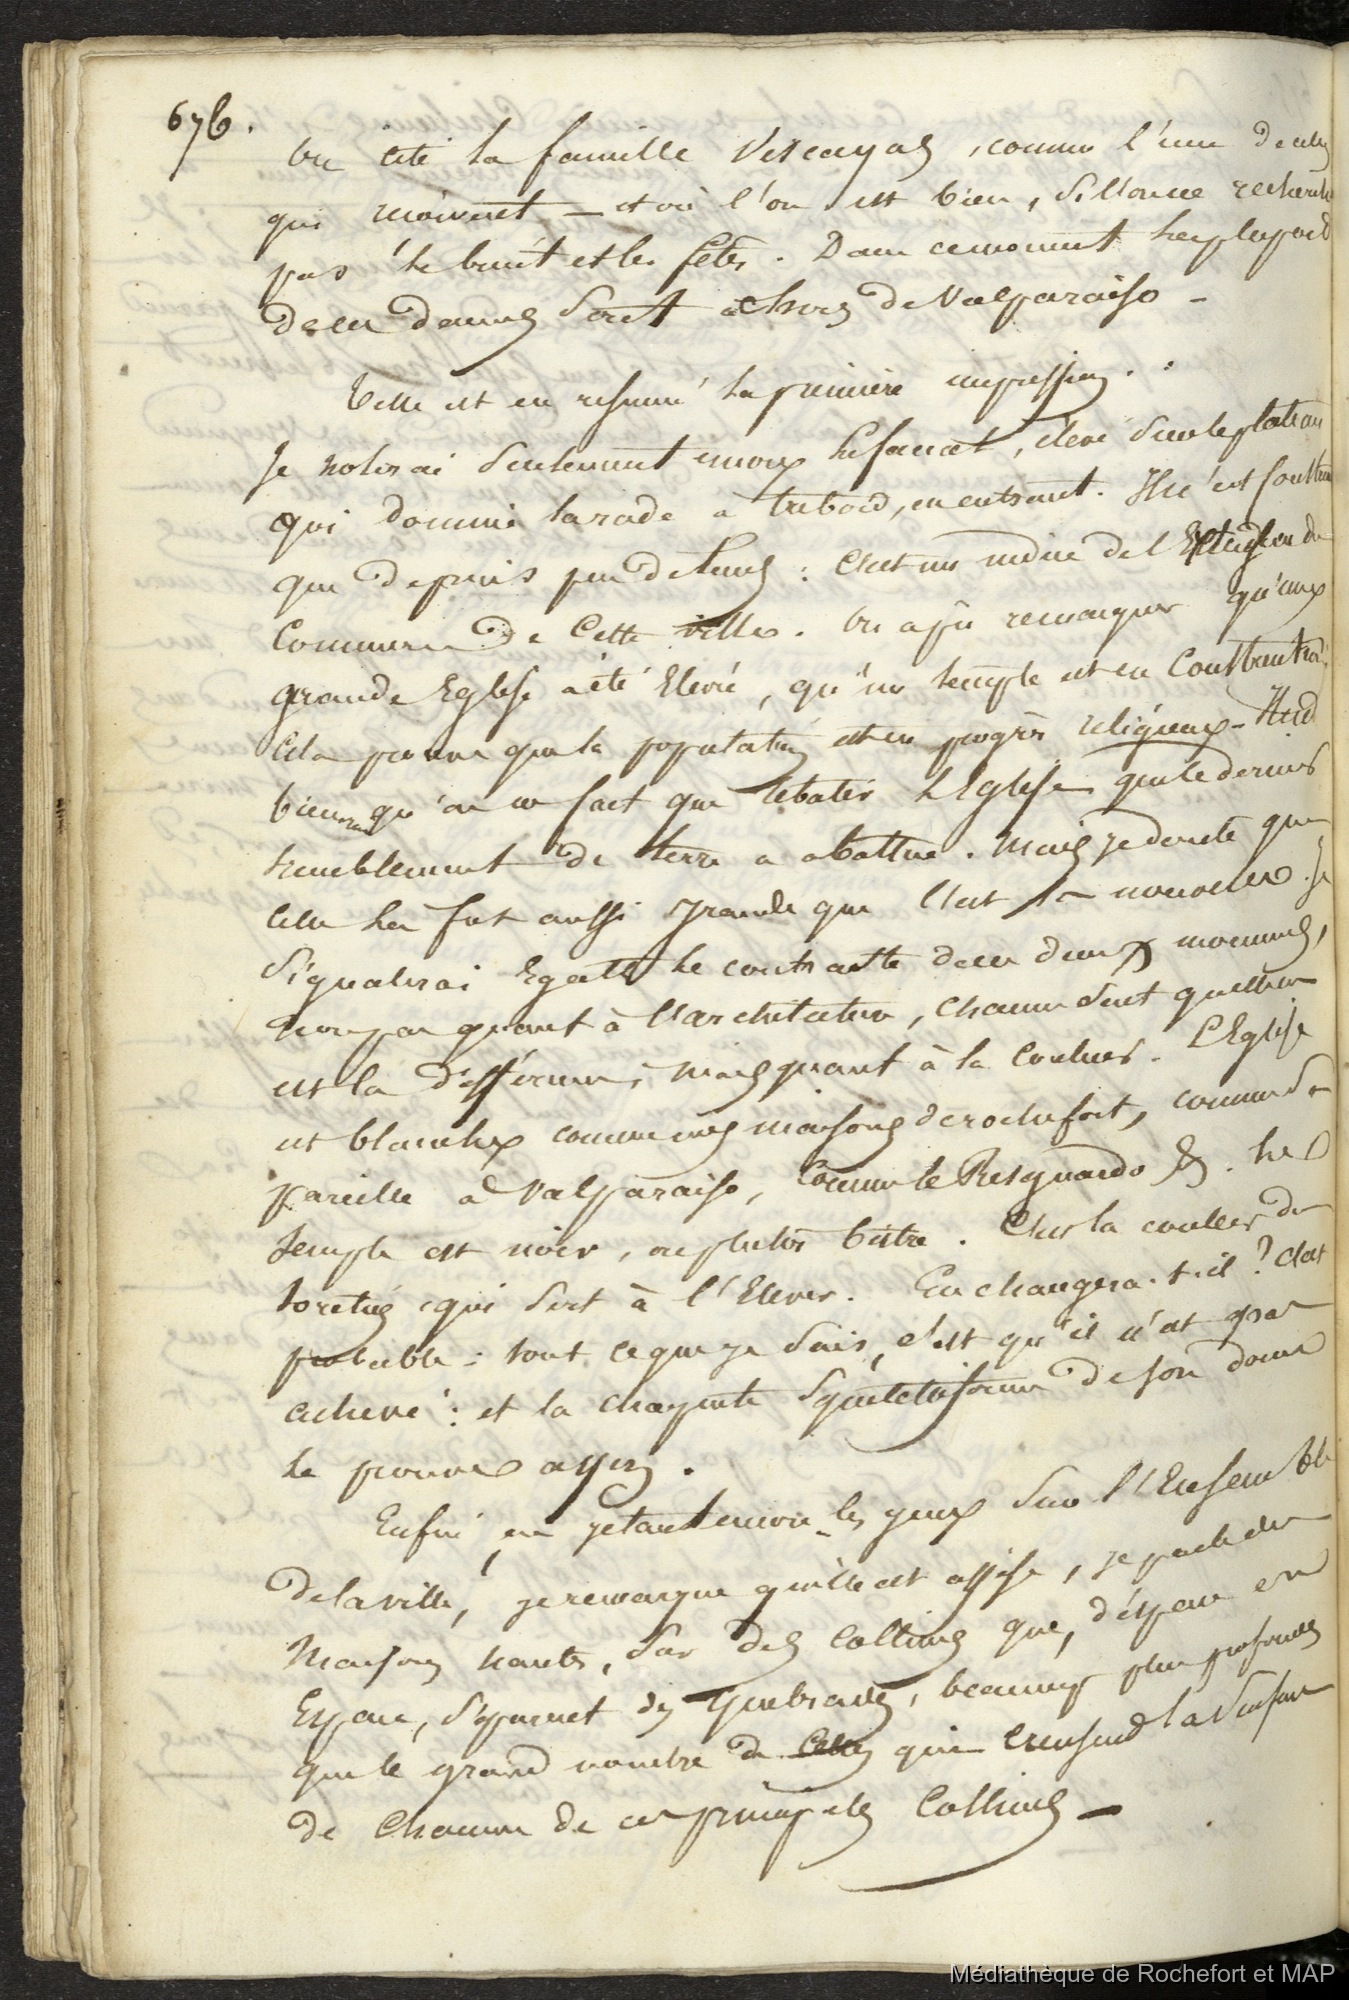 676.
on cite la famille Vescayas, comme l'une de celles
qui reçoivent — et où l'on est bien, si l'on ne recherche
pas le bruit et les fêtes. Dans ce moment la plupart
de ces dames sont dehors de Valparaiso —
Telle est en résumé la première impression. :
Je noterai seulement encore le fanal, élevé sur le plateau
qui domine la rade à tribord, en entrant. Il n'est
que depuis peu de temps : C'est un indice de l'Extension du
Commerce de Cette ville. On a pu remarquer qu'une
grande Eglise a été Elevée, qu'un temple est en Construction.
Cela prouve que la population est en progrès religieux —
bien qu'on ne fait que rebatir l'Eglise que le dernier
tremblement de terre a abattue. Mais je doute que
celle la fut aussi grande que l'est la nouvelle. Je
signalerai Egalt le contraste de ces deux
non pas quant à l'architecture, chacun sent quelle en
est la différence; mais quant à la couleur. L'Eglise
est blanche comme nos maisons de rochefort, comme sa
pareille à Valparaiso, Comme le Resguardo &. Le
temple est noir, ou plutôt bistre. C'est la couleur du
qui sert à l'Elever. En changera-t-il ? c'est
probable : tout ce que je sais, c'est qu'il n'est pas
achevé : et la charpente squeletiforme de son dome
le prouve assez.
Enfin, en jetant encore les yeux sur l'Ensemble
de la ville, je remarque qu'elle est assise, je parle des
maisons hautes, sur des Collines que, d'espace en
Espace, séparent des Quebradas, beaucoup plus profondes
que le grand nombre de Celles qui creusent la surface
de chacune de ces principales Collines —
Médiathèque de Rochefort et MAP